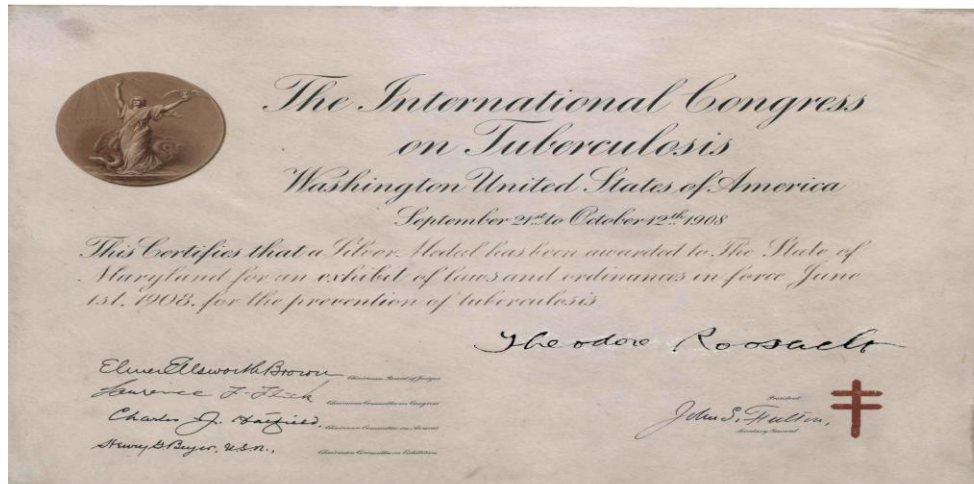 The International Congress
on Tuberculosis
Washington United States of America
September 21st to October 12th 1908
This Certifies that a Silver Medal has been awarded to The State of
Maryland for an exhibit of laws and ordinances in force June
1st, 1908, for the prevention of tuberculosis
Theodore Roosevelt
President
Elmer Ellsworth Brown Chairman Board of Judges
Lawrence F. Flick Chairman Committee on Congress
Charles J. Hatfield, Chairman Committee on Awards
Henry G. Beyer, U.S.N., Chairman Committee on Exhibition
John S. Fulton,
Secretary General